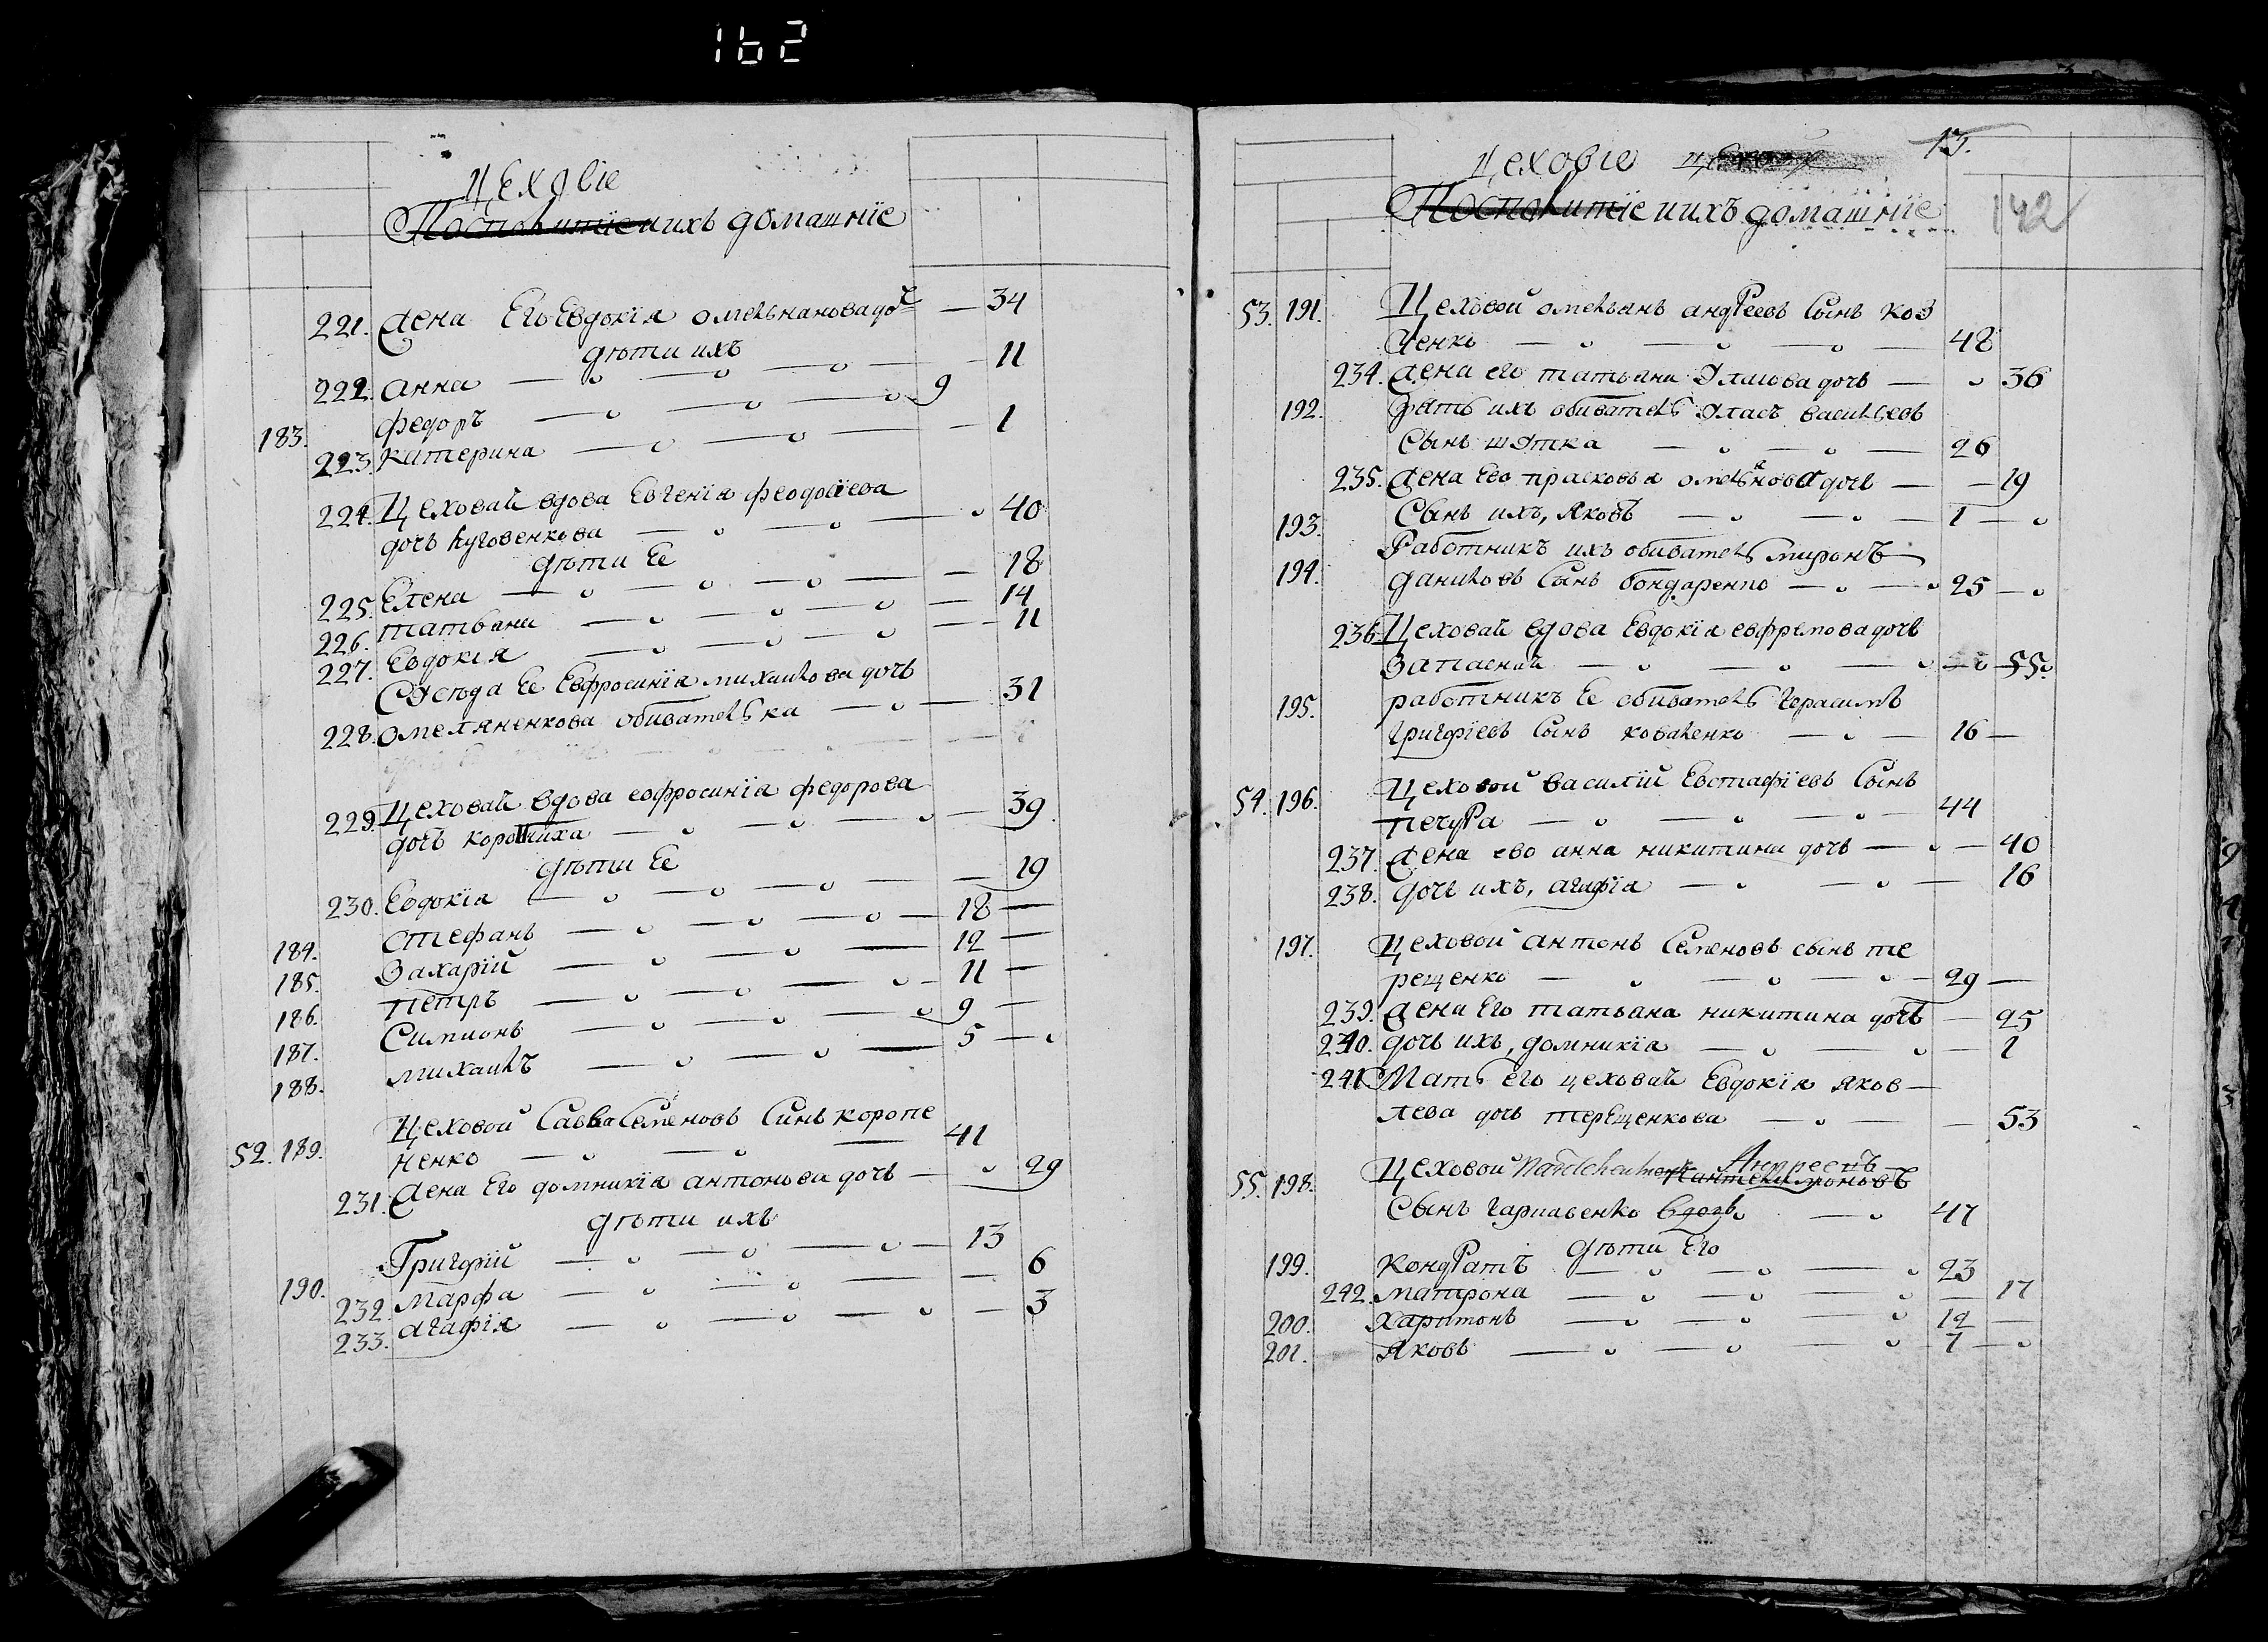 162
Цеховіе
Посполитіе и ихъ домашніе
221. Жена Его Евдокія омельнанова доч 34
дѣти ихъ
222. анна 11
183. федоръ 9
223. катерина 1
224. Цеховая вдова Евгенія феодосіева
дочь луговенкова 40
дѣти Ее
225. Елена 18
226. татьяна 14
227. Евдокія 11
Сусѣда Ее Евфросинія михаилова дочь
228. омеляненкова обивателька 31
229. Цеховая вдова еофросинія федорова
дочь 39
дѣти Ее
230. Евдокія 19
184. Стефанъ 18
185. Захарій 12
186. петръ 11
187. Симионъ 9
188. михаилъ 5
52. 189. Цеховой Савва Семеновъ Синъ коропе
ненко 41
231. Жена Его домникія антонова дочь 29
дѣти ихъ
190. Григорій 13
232. марфа 6
233. агафія 3
13.
Цеховіе
Посполитіе и ихъ домашніе 142
53. 191. Цеховой омельянъ андреевъ Сынъ коз
ленко 48
234. Жена его татьяна Власова дочь 36
192. Зять ихъ обиватель Власъ васильевъ
Сынъ шутка 26
235. Жена Ево прасковья омельянова дочь 19
193. Сынъ ихъ, Яковъ 1
194. Работникъ ихъ обиватель миронъ
даниловъ Сынъ бондаренко 25
236. Цеховая вдова Евдокія евфремова дочь
Запасная 55
195. работникъ Ее обиватель герасимъ
григоріевъ Сынъ коваленко 16
54. 196. Цеховой василій Евстафіевъ Сынъ
печура 44
237. Жена ево анна никитина дочь 40
238. дочь ихъ, агафія 16
197. Цеховой антонъ Семеновъ сынъ те
рещенко 29
239. Жена Его татьяна никитина дочь 25
240. дочь ихъ, домникія 1
241. Мать его цеховая Евдокія яков
лева дочь терещенкова 53
55. 198. Цеховой Андреевъ
Пантелимоновъ
Сынъ гармавенко Вдовъ 47
дѣти Его
199. Кондратъ 23
242. матрона 17
200. харитонъ 12
201. Яковъ 7